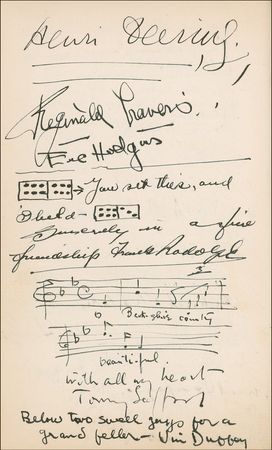 Henri Deering,
Reginald Travers.
Eve Hodgins
You set this, and
I held -
Sincerely in a fine
friendship Frank Rodolph
Berkshire county
beautiful.
with all my heart
Tommy
Below two swell guys for a
grand feller - Vin Duffey